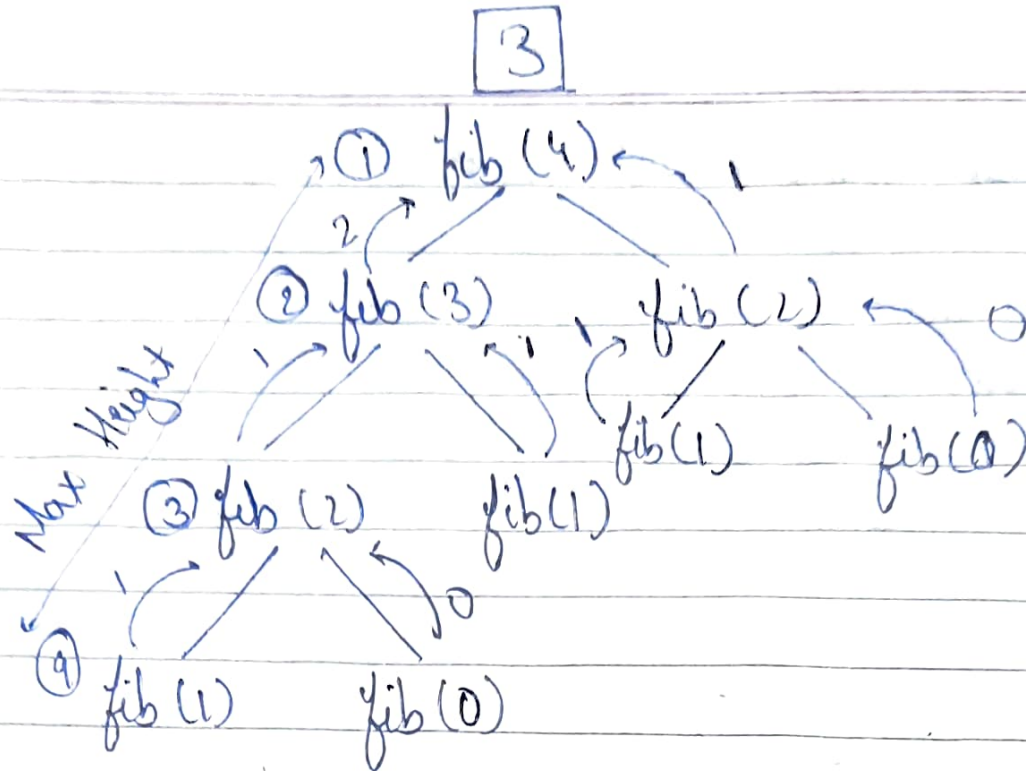 3
① fib (4) 1
2
② fib (3) fib (2) 0
1 1 1
Max Height
fib(1) fib(0)
③ fib (2) fib(1)
1 0
④ fib (1) fib (0)